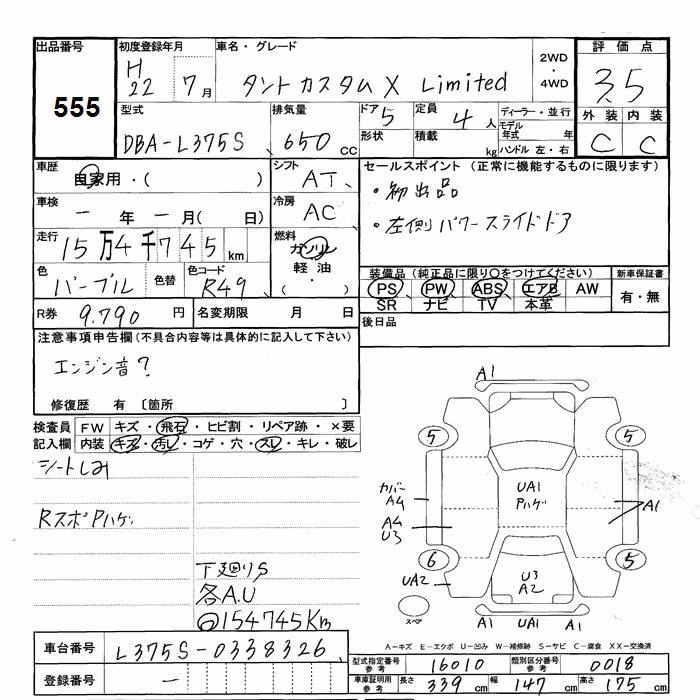 出品番号 初度登録年月 車名・グレード 2WD・4WD 評価点
555 H22 7月 タントカスタムX Limited 3.5
型式 排気量 ドア 定員 ディーラー・並行 外装 内装
DBA-L375S 650cc 5 4人 モデル年式 年 C C
形状 積載 kg ハンドル 左・右
車歴 自家用・( ) シフト AT セールスポイント (正常に機能するものに限ります)
車検 ー年ー月( 日) 冷房 AC ・初出品
走行 15万4千745km 燃料 ガソリン 軽油・( ) ・左側パワースライドドア
色 パープル 色替 色コード R49 装備品(純正品に限り○をつけてください) 新車保証書
PS PW ABS エアB AW 有・無
SR ナビ TV 本革
R券 9,790円 名変期限 月 日 後日品
注意事項申告欄(不具合内容等は具体的に記入して下さい)
エンジン音?
修復歴 有 〔箇所 〕
検査員記入欄 FW キズ・飛石・ヒビ割・リペア跡・×要
内装 キズ・汚レ・コゲ・穴・スレ・キレ・破レ
シートしみ
RスポPハゲ
下廻りS
各A.U
154745Km
A1
5 5
カバー A4 UA1 Pハゲ A1
A4 U3
6 5
UA2 U3 A2
スペア A1 UA1 A1
A-キズ E-エクボ U-凹み W-補修跡 S-サビ C-腐食 XX-交換済
車台番号 L375S-0338326
登録番号 ー
型式指定番号 参考 16010 類別区分番号 参考 0018
車庫証明用 参考 長さ 339cm 幅 147cm 高さ 175cm